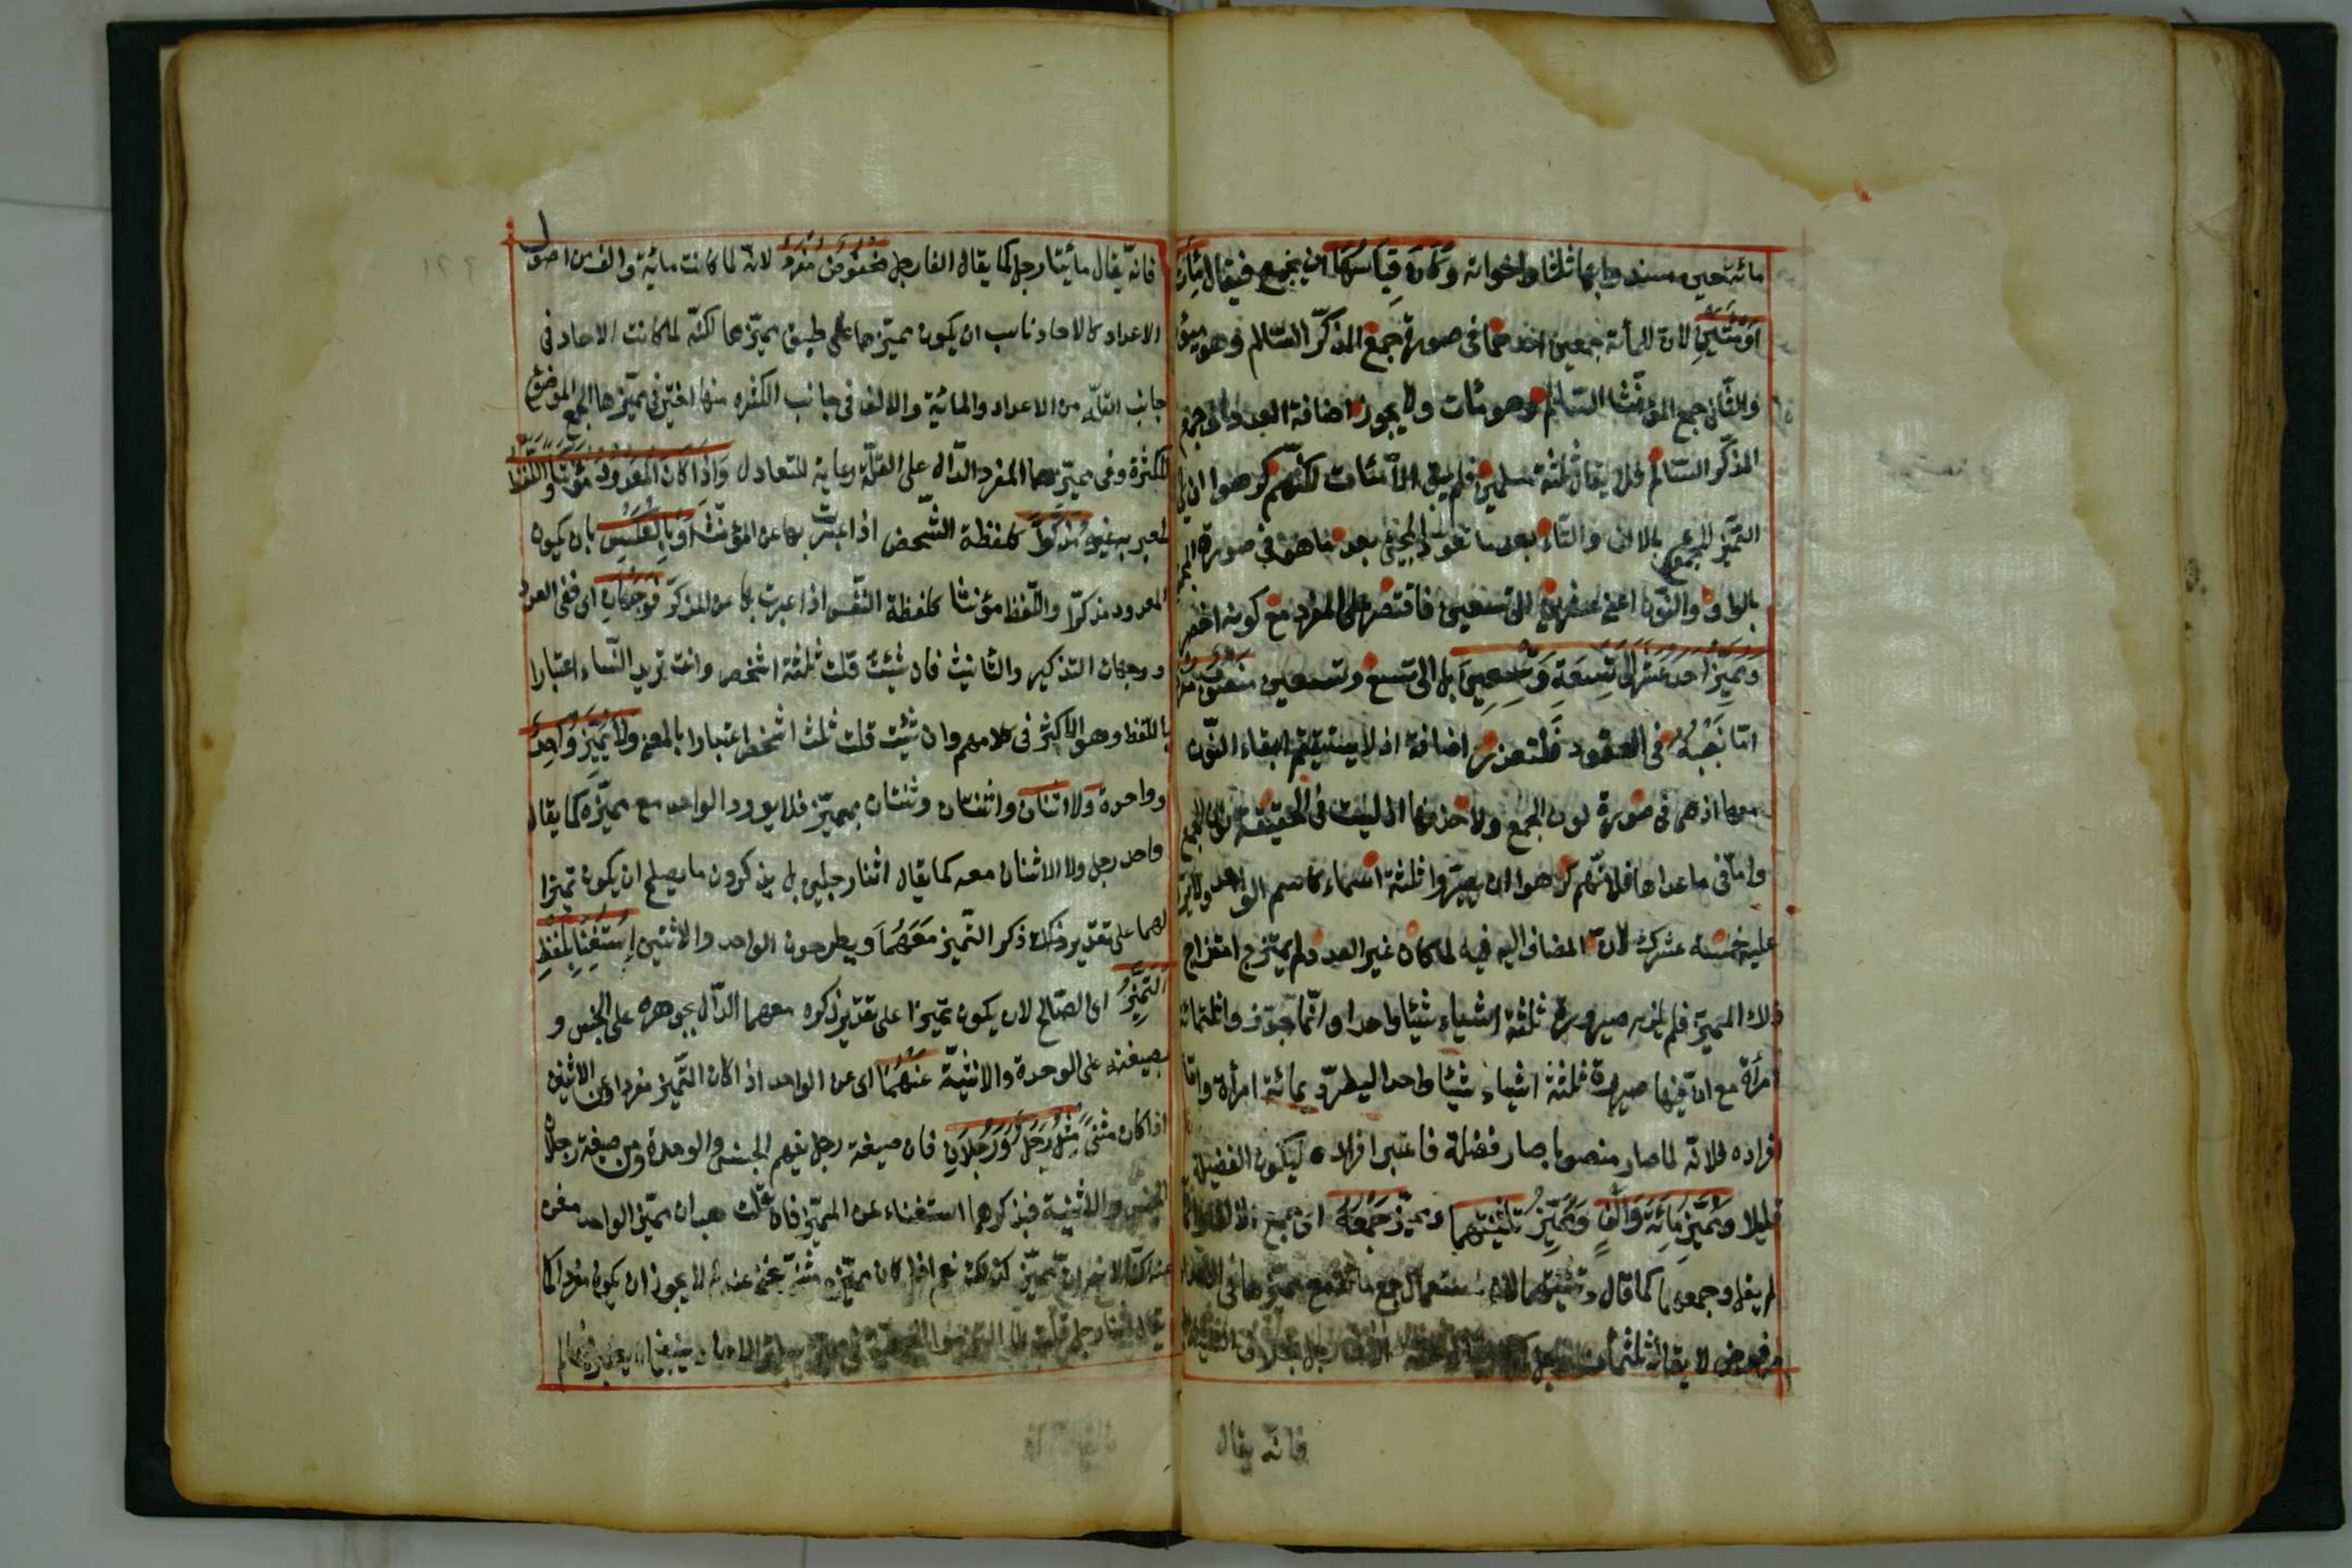 مائة حين يسند وابها ثلثا واخواته وَكَانَ قِيَاسُهَا ان يجمع فيقال مِئَات
اَوْ مِئِيْنَ لان للمأة جمعين احدهما فى صورة جمع المذكّر السّالم وهو مئون
والثّانى جمع المؤنّث السّالم وهو مئات ولا يجوز اضافة العدد الى جمع
المذكّر السّالم فلا يقال ثلثة مسلمين فلم يبق الّا مئات لكنّهم كرهوا ان يلى
التّميز المجموع بالالف والتّاء بعد ما تعوّد المجئ بعد ما هو فى صورة الجمع
بالواو والنّون اعنى عشرين الى تسعين فاقتصر على المفرد مع كونه اخصر
وَمُمَيَّزُ اَحَدَ عَشَرَ اِلَى تِسْعَةٍ وَتِسْعِيْنَ بل الى تسع وتسعين مَنْصُوْبٌ مُفْرَدٌ
امّا نَصْبُهُ فى العقود فلتعذّر اضافة اذ لا يستقيم ابقاء النّون
معها اذ هى فى صورة نون الجمع ولا حذفها اذ ليست فى الحقيقة نون الجمع
وامّا فى ماعداها فلانّهم كرهوا ان يصيّروا ثلثة اسماء كاسم الواحد ولا يرد
عليه خمسة عشرك لانّ المضاف اليه فيه لما كان غير العدد لم يمتزج امتزاج
ذلك المميّز فلم يلزم صيرورة ثلثة اشياء شيئا واحدا وانّما جوّزوا ثلثمائة
امرأة مع انّ فيها صيرورة ثلثة اشياء شيئا واحدا ليطرّد بمائة امرأة وامّا
افراده فلانّه لما صار منصوبا صار فضلة فاعتبر افراده ليكون الفضلة
قليلا وَمُمَيَّزُ مِائَةٍ وَاَلْفٍ وَمُمَيَّزُ تَثْنِيَتِهِمَا ومميّز جَمْعِهِ اى جمع الالف وانّما
لم يقل وجمعهما كما قال وتثنيتهما لان استعمال جمع مائة مع مميّزها فى الاعداد
مرفوض لا يقال ثلثمآت رجل
فانّه يقال
فانّه يقال مأيتا رجل كما يقال الفا رجل مَخْفُوضٌ مُفْرَدٌ لانّه لما كانت مائة والف من اصول
الاعداد كالاحاد ناسب ان يكون مميّزهما على طبق مميّزها لكنّه لما كانت الاحاد فى
جانب القلّة من الاعداد والمائة والالف فى جانب الكثرة منها اختير فى مميّزها الجمع الموضوع
للكثرة وفى مميّزهما المفرد الدّال على القلّة رعاية للتعادل وَاِذَا كَانَ الْمَعْدُوْدُ مُؤَنَّثًا وَاللَّفْظُ
المعبر به عنه مُذَكَّرًا كلفظة الشّخص اذا عبّرت بها عن المؤنّث اَوْ بِالْعَكْسِ بان يكون
المعدود مذكرّا واللّفظ مؤنثا كلفظة النّفس اذا عبرت بها عن المذكّر فَوَجْهَانِ اى ففى العدد
وجهان التذكير والتّانيث فان شئت قلت ثلثة اشخص وانت تريد النّساء اعتبارا
باللّفظ وهو الاكثر فى كلامهم وان شئت قلت ثلث اشخص اعتبارا بالمعنى وَلَا يُمَيَّزُ وَاحِدٌ
وواحدة وَلَا اثْنَانِ واثنتان وثنتان بمميّز فلا يورد الواحد مع مميّزه كما يقال
واحد رجل ولا الاثنان معه كما يقال اثنا رجلين بل يذكرون ما يصلح ان يكون تميزا
لهما على تقدير ذلك ذكر التّميز مَعَهُمَا ويطرحون الواحد والاثنين اِسْتِغْنَاءً بِلَفْظِ
التَّمْيِيْزِ اى الصّالح لان يكون تميزا على تقدير ذكره معهما الدّال بجوهره على الجنس و
بصيغته على الوحدة والاثنيّة عَنْهُمَا اى عن الواحد اذا كان التّميز مفردا وعن الاثنين
اذا كان مثنى مِثْلُ رَجُلٍ وَرَجُلَانِ فان صيغة رجل يفهم الجنس والوحدة ومن صيغة رجلان
الجنس والاثنينية فبذكرهما استغناء عن المميّز فان قلت هب ان مميّز الواحد مغن
عنه لكن لا نم ان مميّز كذلك نعم اذا كان مميّزه مثنّى يغنى عنه لم لا يجوز ان يكون مفردا كما
يقال اثنا رجل قلت